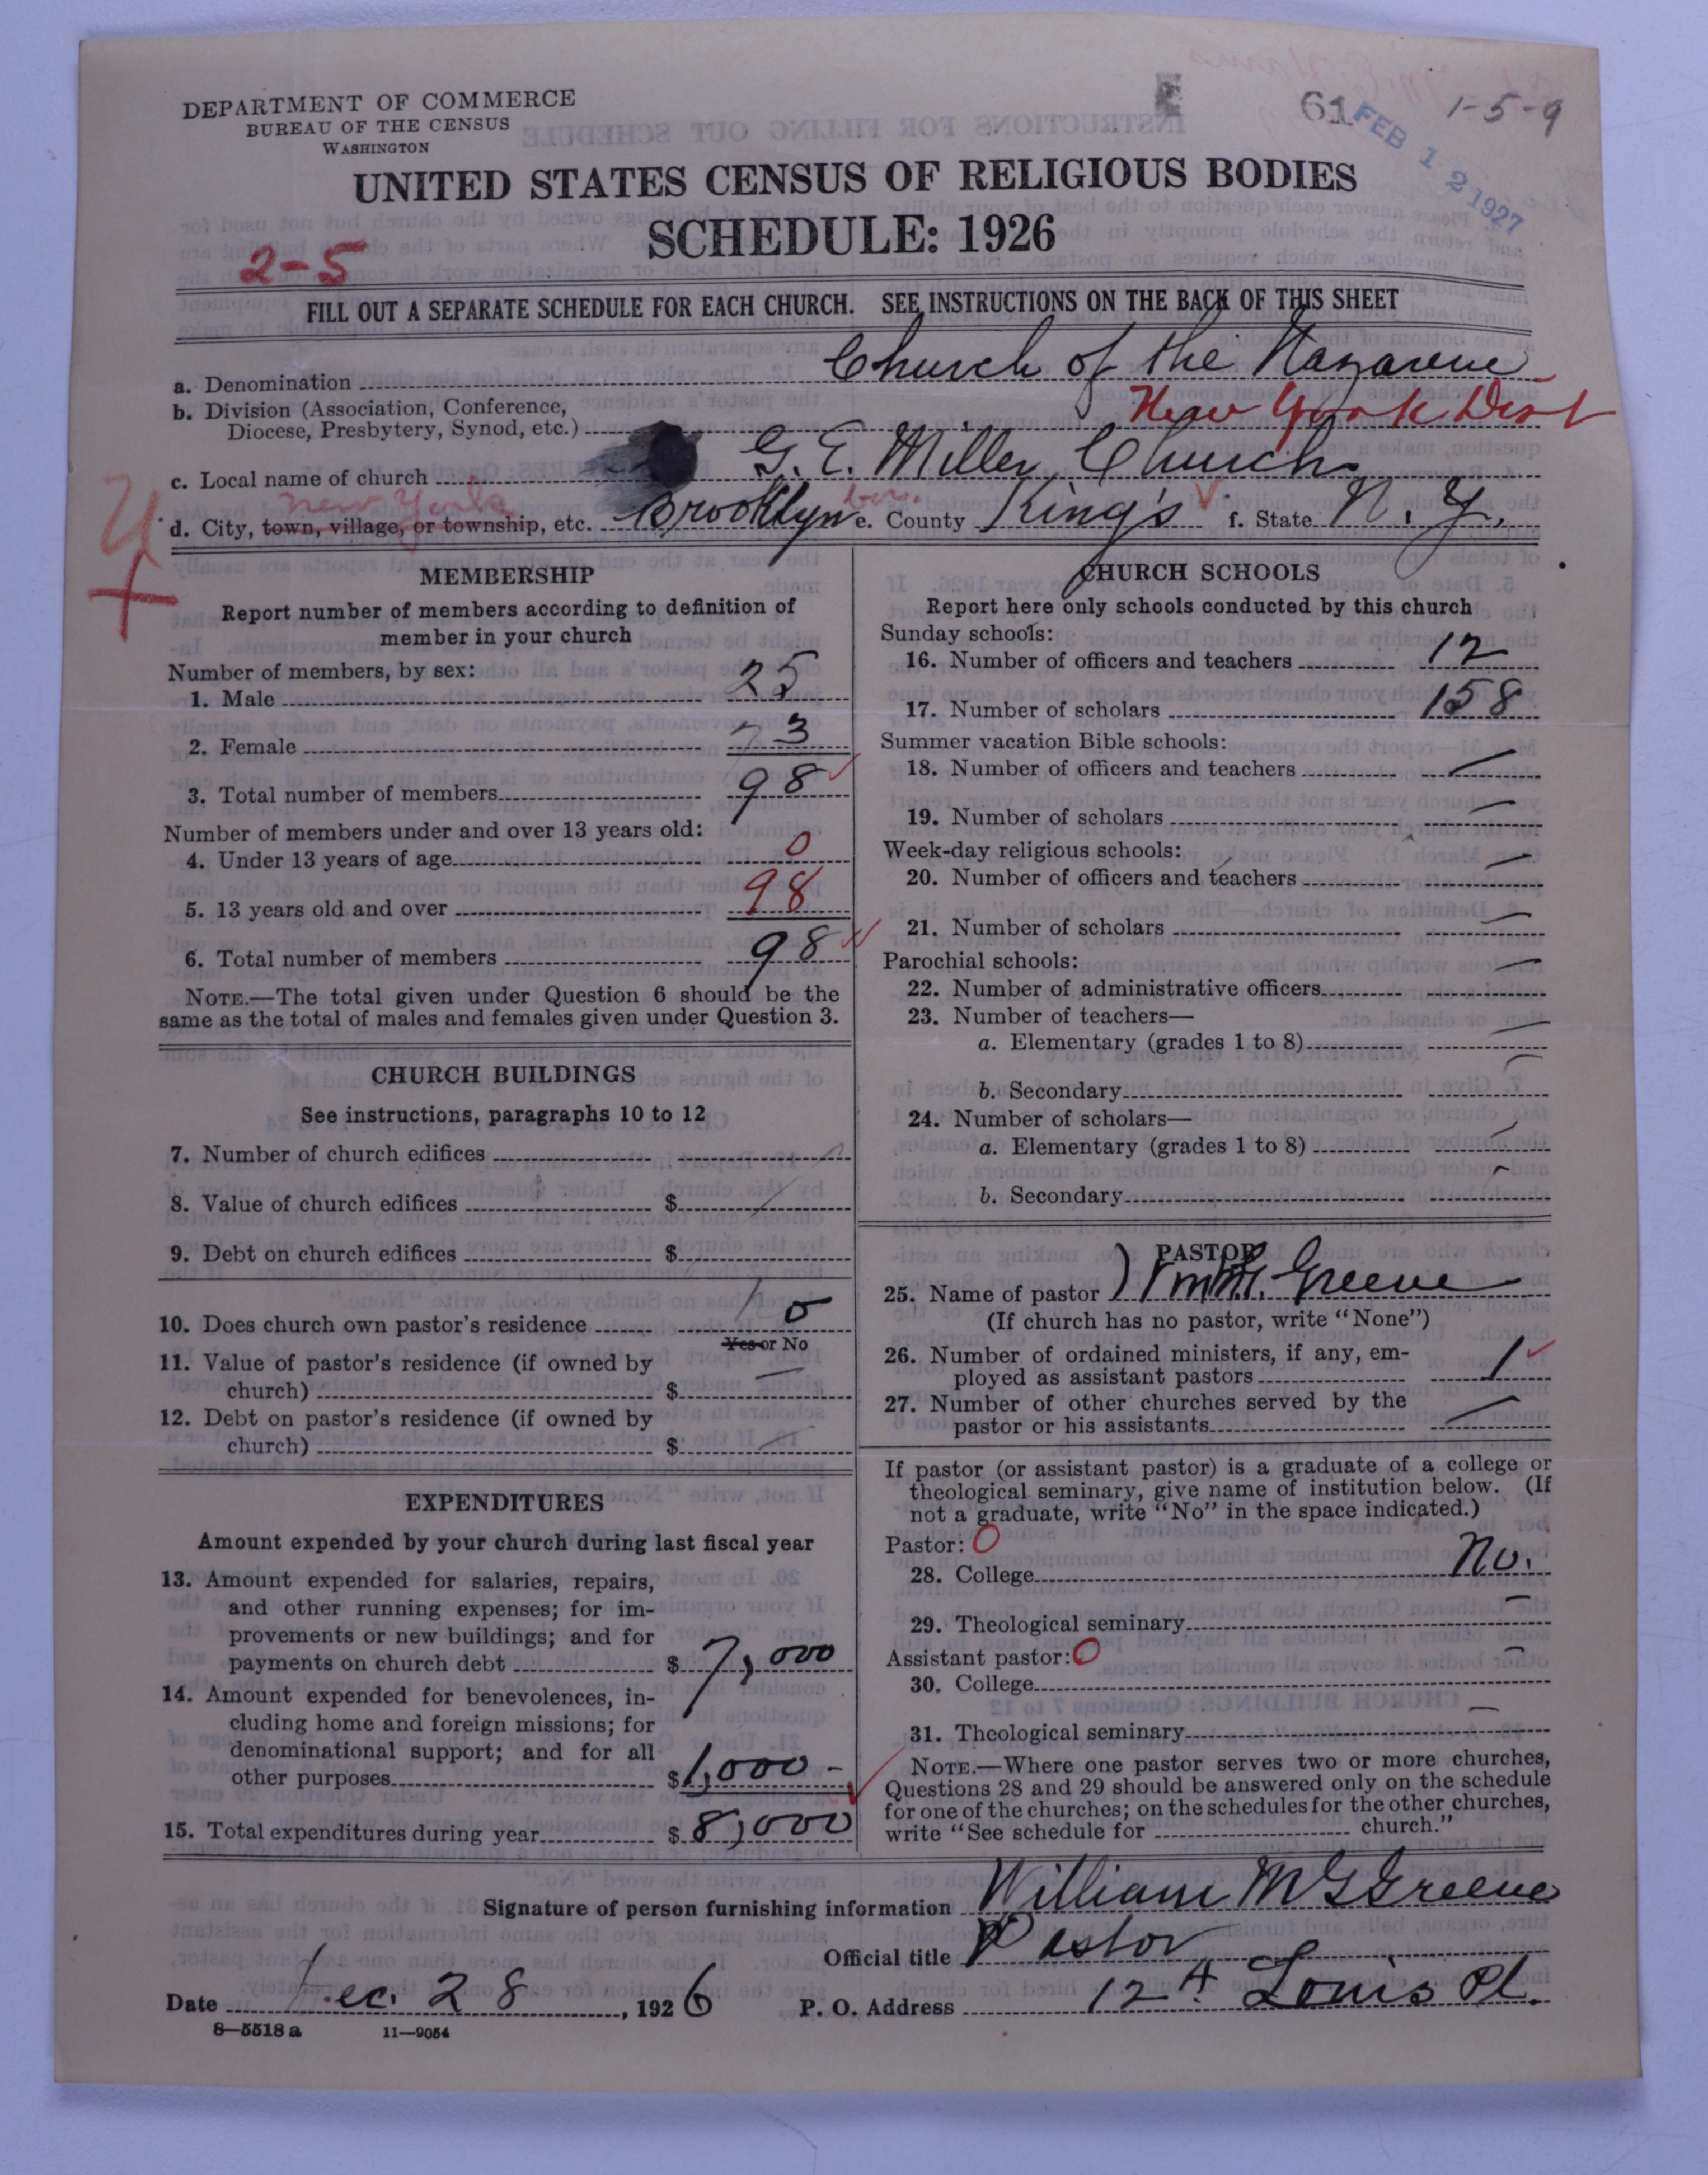 DEPARTMENT OF COMMERCE
BUREAU OF THE CENSUS
WASHINGTON
61
FEB 12 1927
1-5-9
UNITED STATES CENSUS OF RELIGIOUS BODIES
SCHEDULE: 1926
2-5
FILL OUT A SEPARATE SCHEDULE FOR EACH CHURCH. SEE INSTRUCTIONS ON THE BACK OF THIS SHEET
a. Denomination Church of the Nazarene
b. Division (Association, Conference, New York Dist
Diocese, Presbytery, Synod, etc.)
c. Local name of church G. E. Miller Church
New York
d. City, town, village, or township, etc. Brooklyn bor. e. County King's f. State N. Y.
MEMBERSHIP
Report number of members according to definition of
member in your church
Number of members, by sex:
1. Male 25
2. Female 73
3. Total number of members 98
Number of members under and over 13 years old:
4. Under 13 years of age 0
5. 13 years old and over 98
6. Total number of members 98
NOTE.—The total given under Question 6 should be the
same as the total of males and females given under Question 3.
CHURCH BUILDINGS
See instructions, paragraphs 10 to 12
7. Number of church edifices
8. Value of church edifices $
9. Debt on church edifices $
10. Does church own pastor's residence No
Yes or No
11. Value of pastor's residence (if owned by
church) $ —
12. Debt on pastor's residence (if owned by
church) $ —
EXPENDITURES
Amount expended by your church during last fiscal year
13. Amount expended for salaries, repairs,
and other running expenses; for im-
provements or new buildings; and for
payments on church debt $ 7,000
14. Amount expended for benevolences, in-
cluding home and foreign missions; for
denominational support; and for all
other purposes $ 1,000 -
15. Total expenditures during year $ 8,000
CHURCH SCHOOLS
Report here only schools conducted by this church
Sunday schools:
16. Number of officers and teachers 12
17. Number of scholars 158
Summer vacation Bible schools:
18. Number of officers and teachers —
19. Number of scholars —
Week-day religious schools:
20. Number of officers and teachers —
21. Number of scholars —
Parochial schools:
22. Number of administrative officers —
23. Number of teachers—
a. Elementary (grades 1 to 8) —
b. Secondary —
24. Number of scholars—
a. Elementary (grades 1 to 8) —
b. Secondary —
PASTOR
25. Name of pastor Greene
(If church has no pastor, write "None")
26. Number of ordained ministers, if any, em-
ployed as assistant pastors 1
27. Number of other churches served by the
pastor or his assistants —
If pastor (or assistant pastor) is a graduate of a college or
theological seminary, give name of institution below. (If
not a graduate, write "No" in the space indicated.)
Pastor: 0
28. College No.
29. Theological seminary —
Assistant pastor: 0
30. College —
31. Theological seminary —
NOTE.—Where one pastor serves two or more churches,
Questions 28 and 29 should be answered only on the schedule
for one of the churches; on the schedules for the other churches,
write "See schedule for church."
Signature of person furnishing information William M G Greene
Official title Pastor
Date Dec. 28, 1926 P. O. Address 12 A Louis Pl.
8—5518 a 11—9054